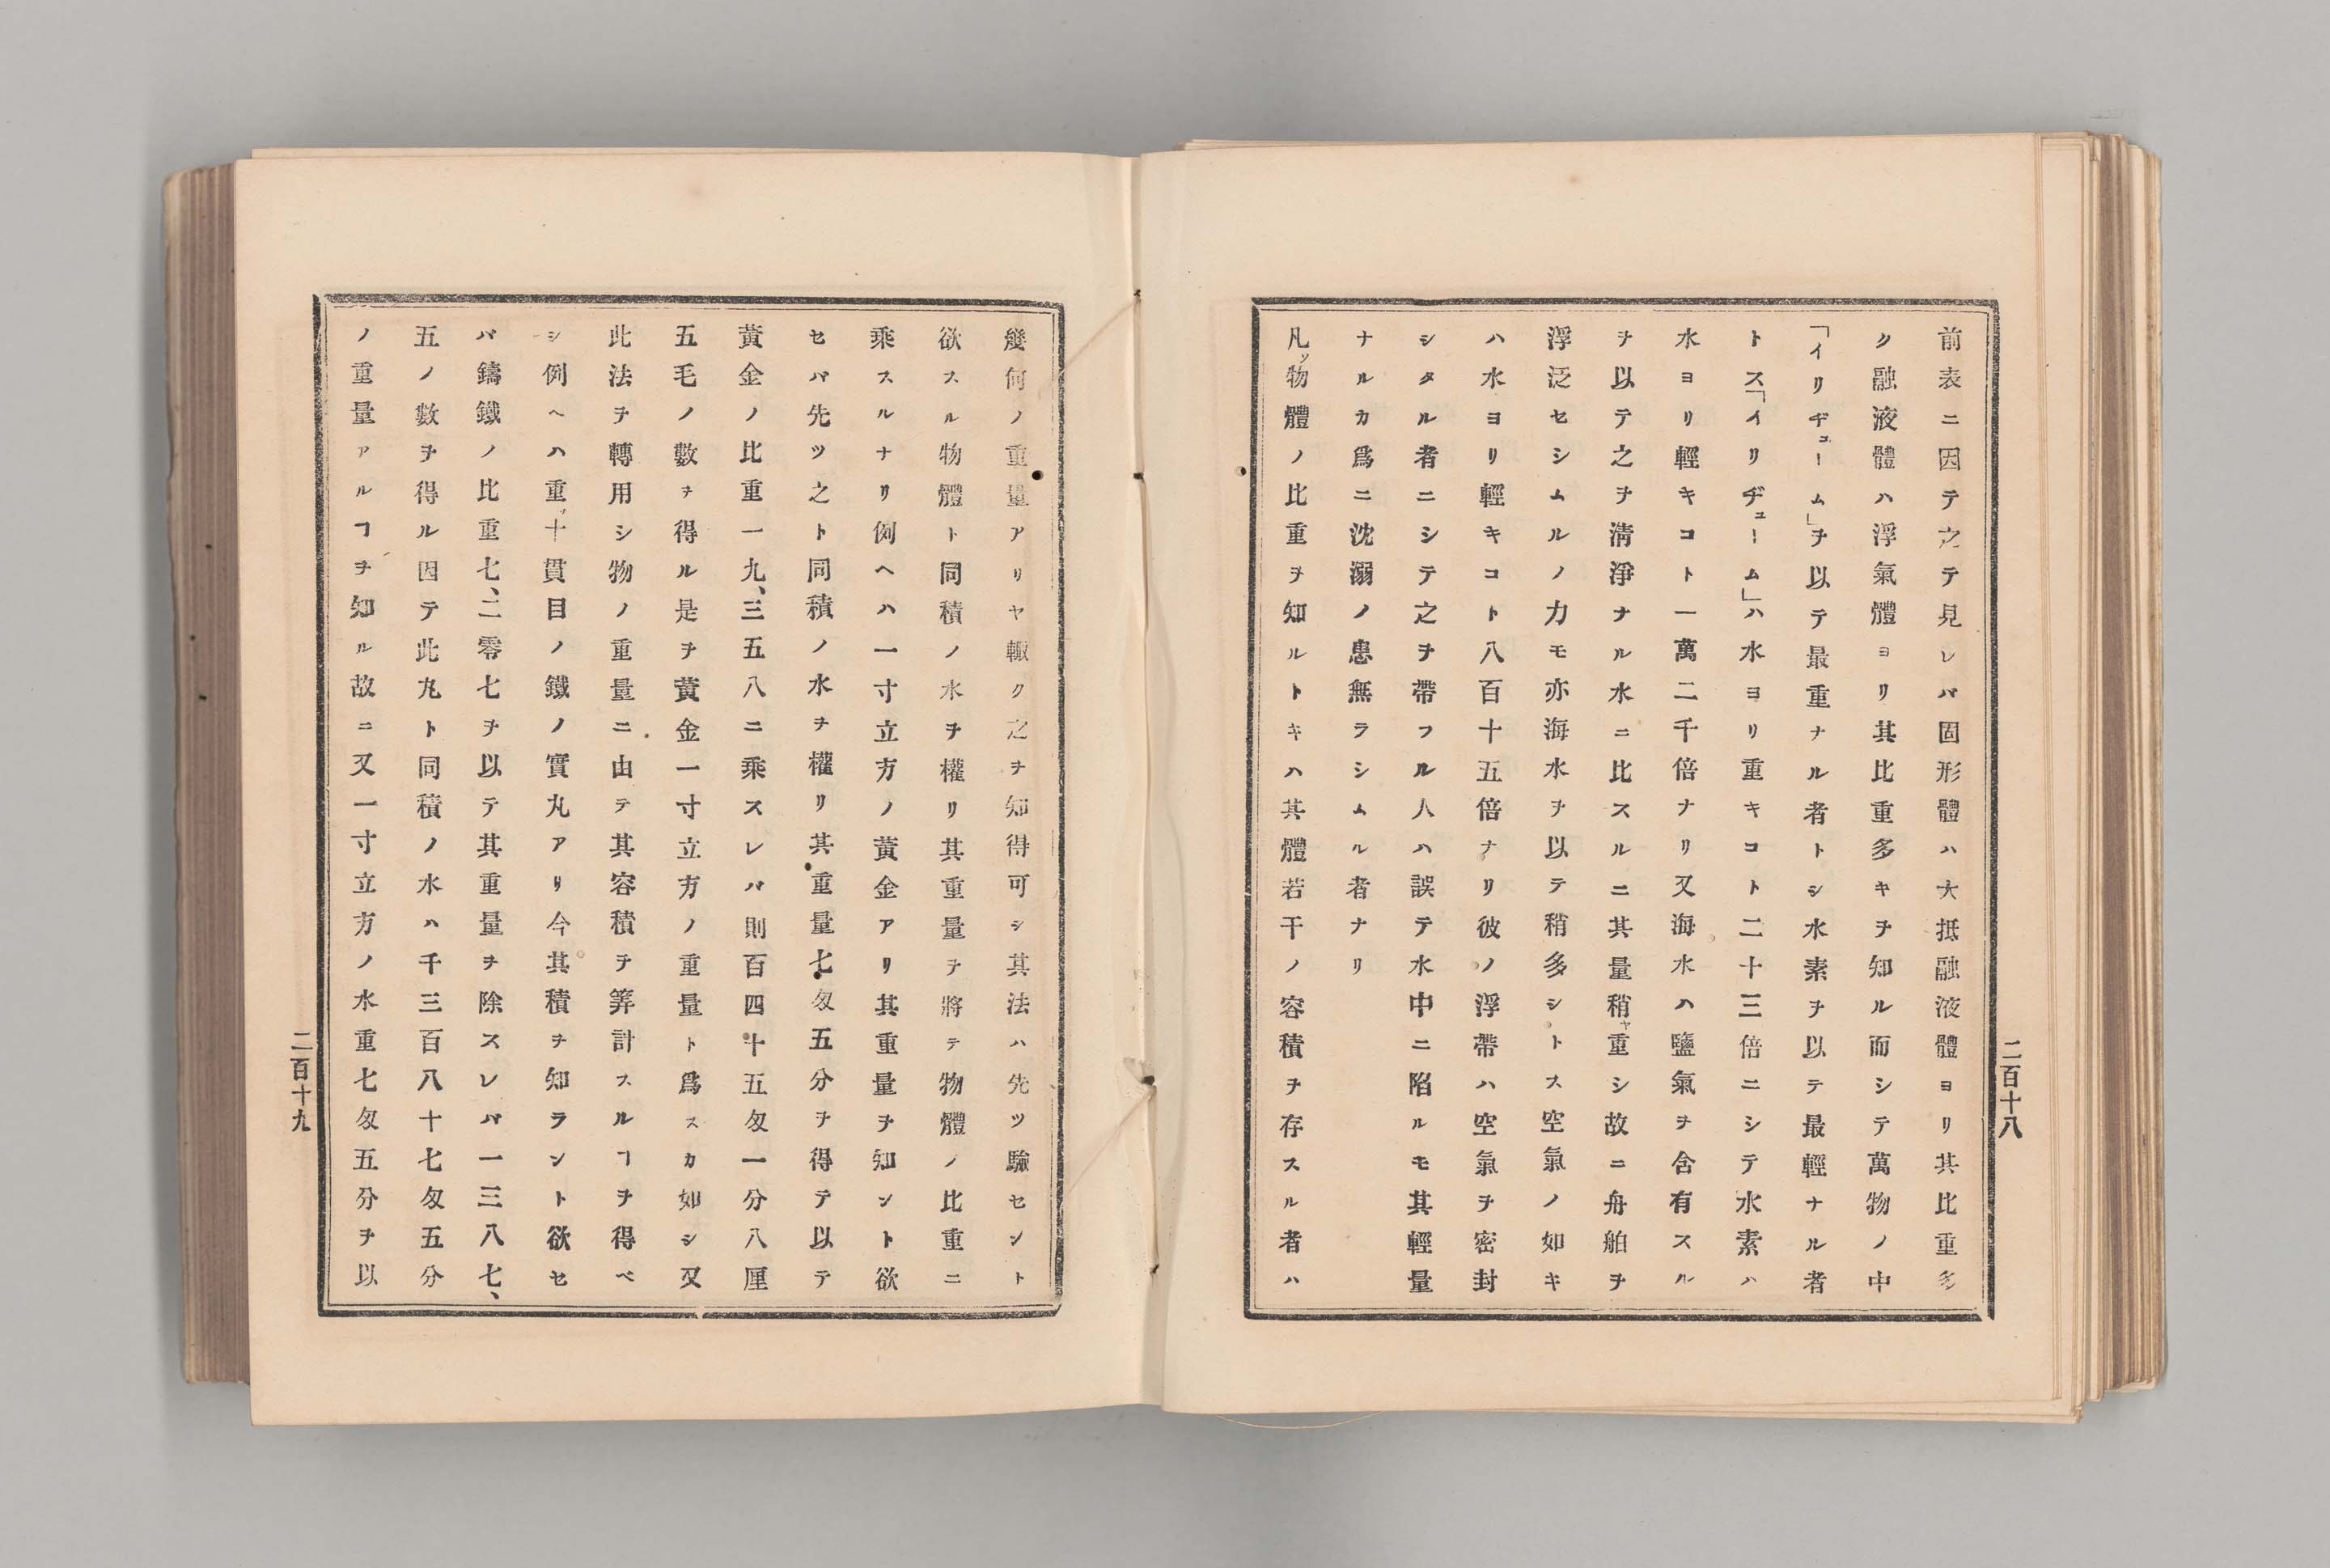 前表ニ因テ之テ見レバ固形體ハ大抵融液體ヨリ其比重多
ク融液體ハ浮氣體ヨリ其比重多キヲ知ル而シテ萬物ノ中
「イリヂューム」ヲ以テ最重ナル者トシ水素ヲ以テ最輕ナル者
トス「イリヂューム」ハ水ヨリ重キコト二十三倍ニシテ水素ハ
水ヨリ輕キコト一萬二千倍ナリ又海水ハ鹽氣ヲ含有スル
ヲ以テ之ヲ淸淨ナル水ニ比スルニ其量稍ヤ重シ故ニ舟舶ヲ
浮泛セシムルノ力モ亦海水ヲ以テ稍多シトス空氣ノ如キ
ハ水ヨリ輕キコト八百十五倍ナリ彼ノ浮帶ハ空氣ヲ密封
シタル者ニシテ之ヲ帶フル人ハ誤テ水中ニ陷ルモ其輕量
ナルカ爲ニ沈溺ノ患無ラシムル者ナリ
凡ッ物體ノ比重ヲ知ルトキハ其體若干ノ容積ヲ存スル者ハ
二百十八
幾何ノ重量アリヤ輙ク之ヲ知得可シ其法ハ先ツ驗セント
欲スル物體ト同積ノ水ヲ權リ其重量ヲ將テ物體ノ比重ニ
乘スルナリ例ヘハ一寸立方ノ黃金アリ其重量ヲ知ント欲
セバ先ツ之ト同積ノ水ヲ權リ其重量七匁五分ヲ得テ以テ
黃金ノ比重一九、三五八ニ乘スレバ則百四十五匁一分八厘
五毛ノ數ヲ得ル是ヲ黃金一寸立方ノ重量ト爲スカ如シ又
此法ヲ轉用シ物ノ重量ニ由テ其容積ヲ筭計スルヿヲ得ベ
シ例ヘハ重サ十貫目ノ鐵ノ實丸アリ今其積ヲ知ラント欲セ
バ鑄鐵ノ比重七、二零七ヲ以テ其重量ヲ除スレバ一三八七、
五ノ數ヲ得ル因テ此丸ト同積ノ水ハ千三百八十七匁五分
ノ重量アルヿヲ知ル故ニ又一寸立方ノ水重七匁五分ヲ以
二百十九